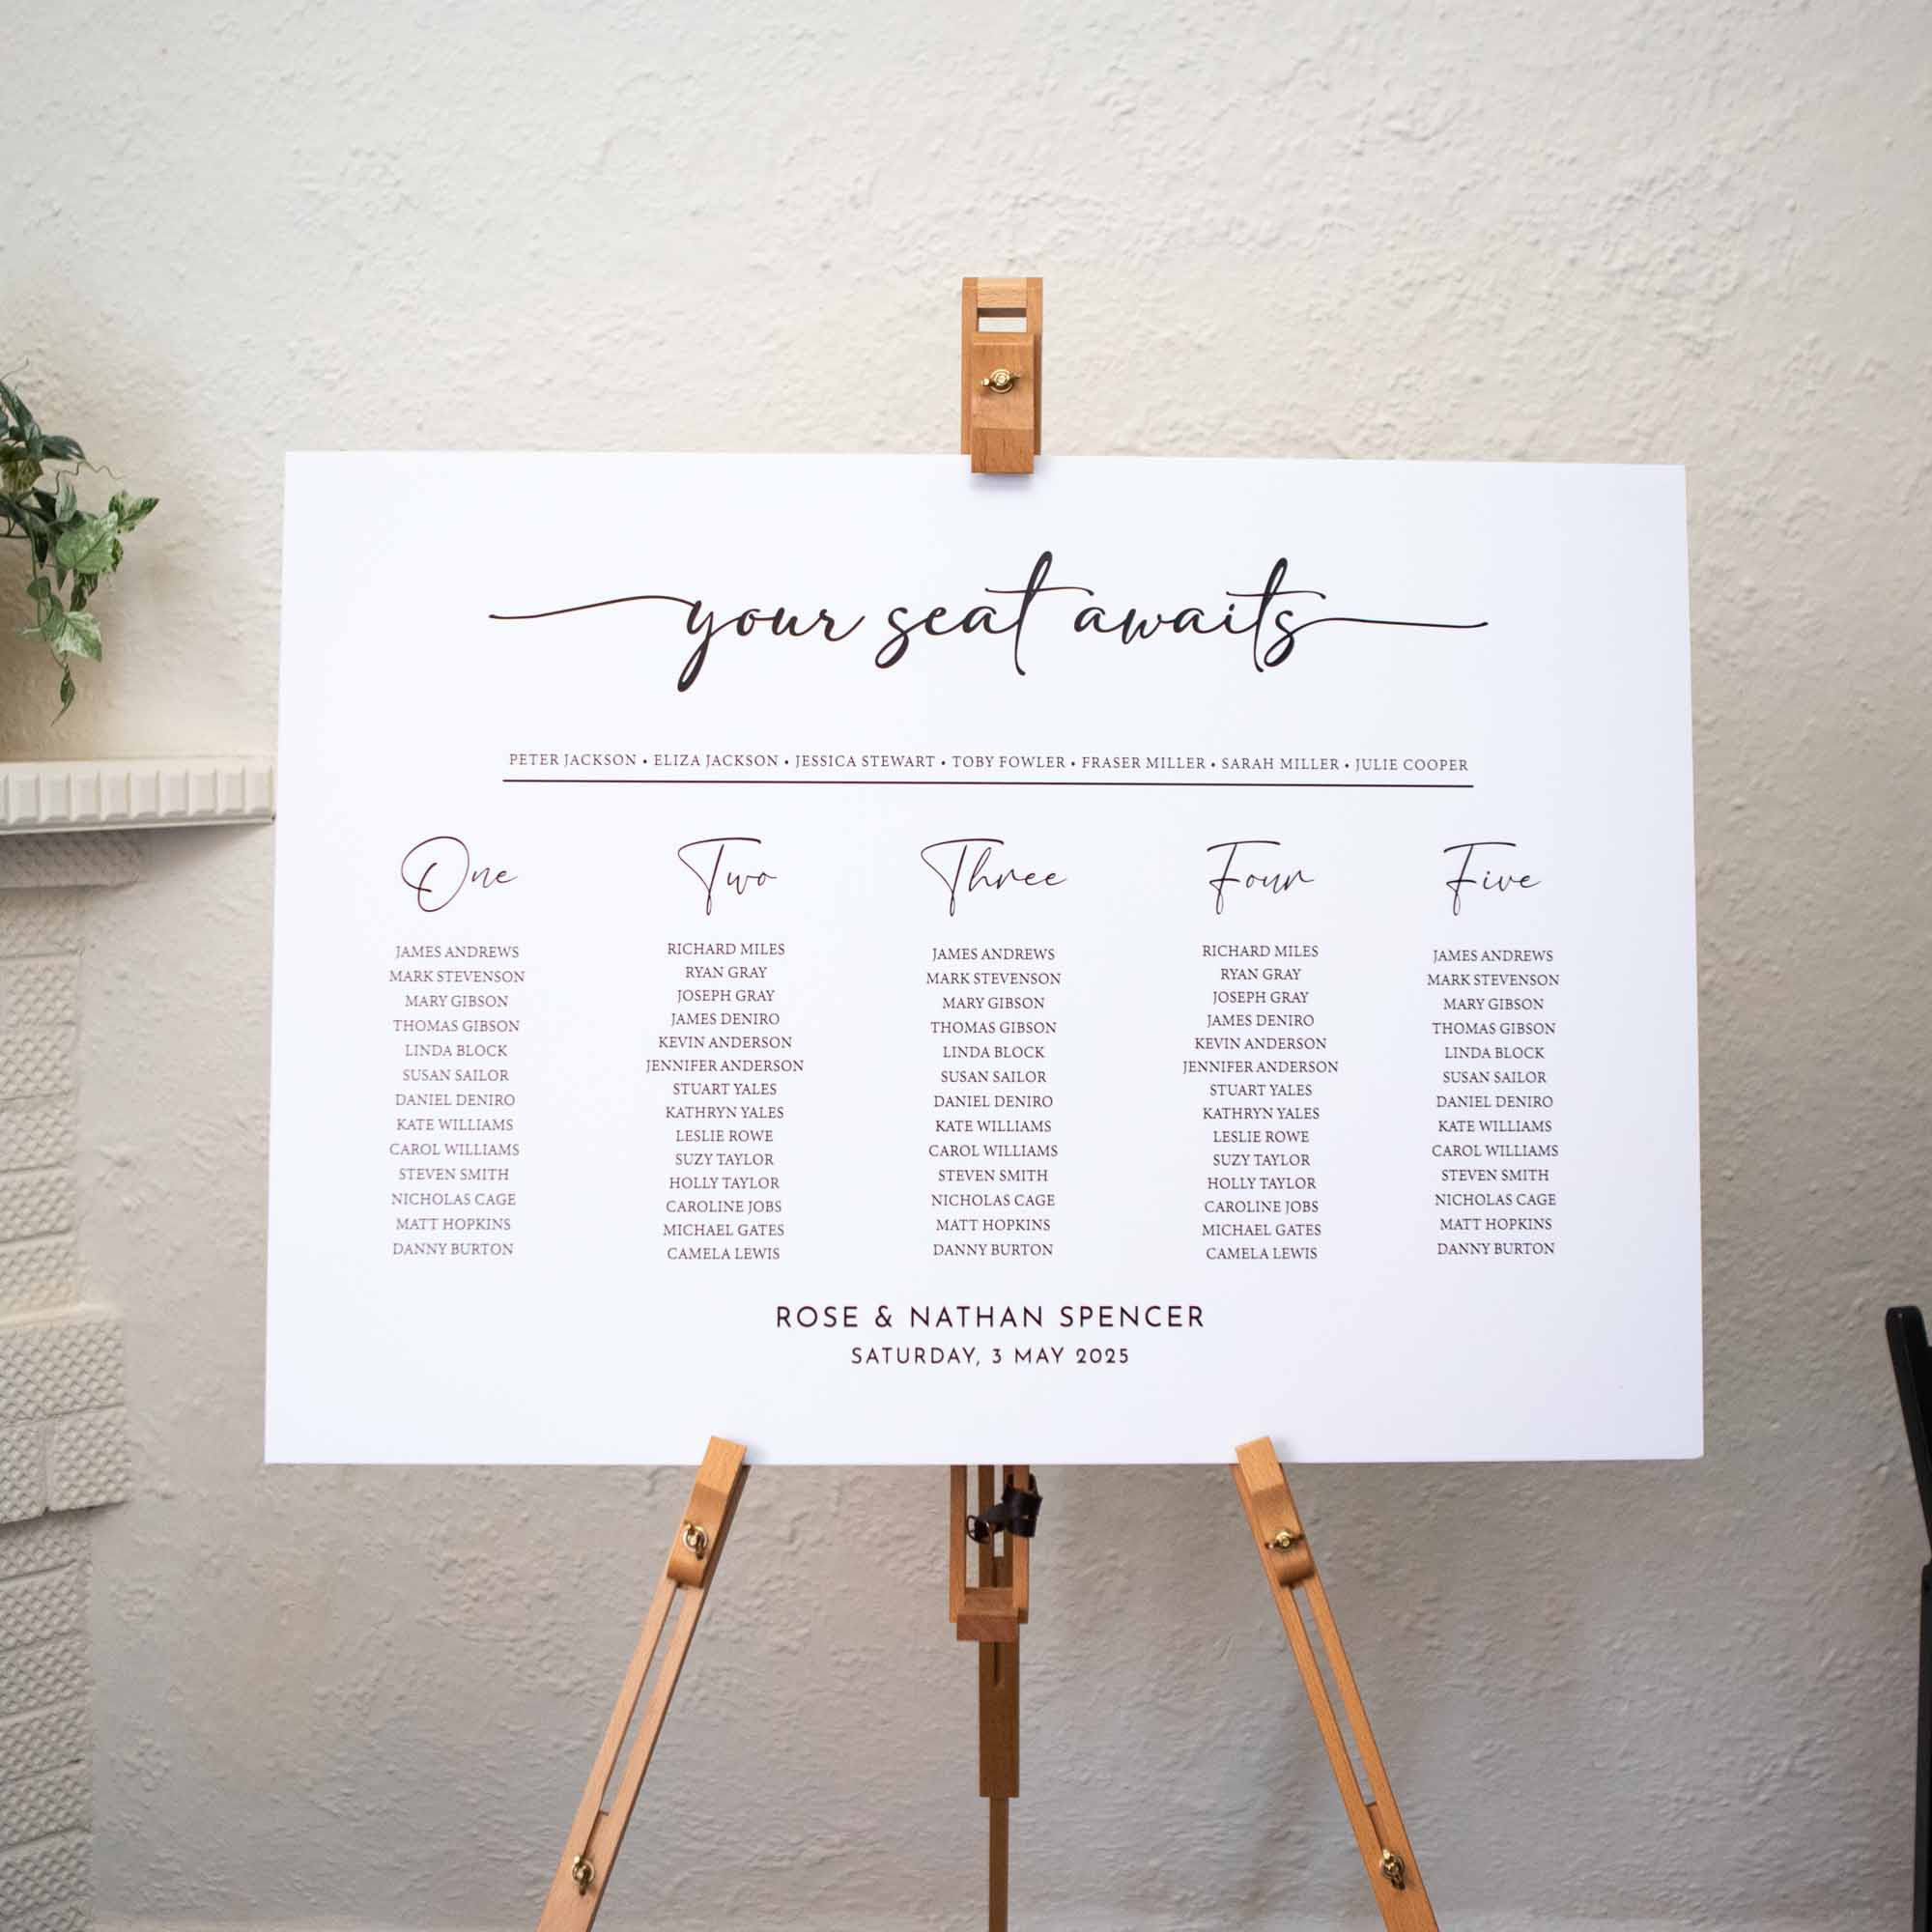 your seat awaits
PETER JACKSON • ELIZA JACKSON • JESSICA STEWART • TOBY FOWLER • FRASER MILLER • SARAH MILLER • JULIE COOPER
One
JAMES ANDREWS
MARK STEVENSON
MARY GIBSON
THOMAS GIBSON
LINDA BLOCK
SUSAN SAILOR
DANIEL DENIRO
KATE WILLIAMS
CAROL WILLIAMS
STEVEN SMITH
NICHOLAS CAGE
MATT HOPKINS
DANNY BURTON
Two
RICHARD MILES
RYAN GRAY
JOSEPH GRAY
JAMES DENIRO
KEVIN ANDERSON
JENNIFER ANDERSON
STUART YALES
KATHRYN YALES
LESLIE ROWE
SUZY TAYLOR
HOLLY TAYLOR
CAROLINE JOBS
MICHAEL GATES
CAMELA LEWIS
Three
JAMES ANDREWS
MARK STEVENSON
MARY GIBSON
THOMAS GIBSON
LINDA BLOCK
SUSAN SAILOR
DANIEL DENIRO
KATE WILLIAMS
CAROL WILLIAMS
STEVEN SMITH
NICHOLAS CAGE
MATT HOPKINS
DANNY BURTON
Four
RICHARD MILES
RYAN GRAY
JOSEPH GRAY
JAMES DENIRO
KEVIN ANDERSON
JENNIFER ANDERSON
STUART YALES
KATHRYN YALES
LESLIE ROWE
SUZY TAYLOR
HOLLY TAYLOR
CAROLINE JOBS
MICHAEL GATES
CAMELA LEWIS
Five
JAMES ANDREWS
MARK STEVENSON
MARY GIBSON
THOMAS GIBSON
LINDA BLOCK
SUSAN SAILOR
DANIEL DENIRO
KATE WILLIAMS
CAROL WILLIAMS
STEVEN SMITH
NICHOLAS CAGE
MATT HOPKINS
DANNY BURTON
ROSE & NATHAN SPENCER
SATURDAY, 3 MAY 2025